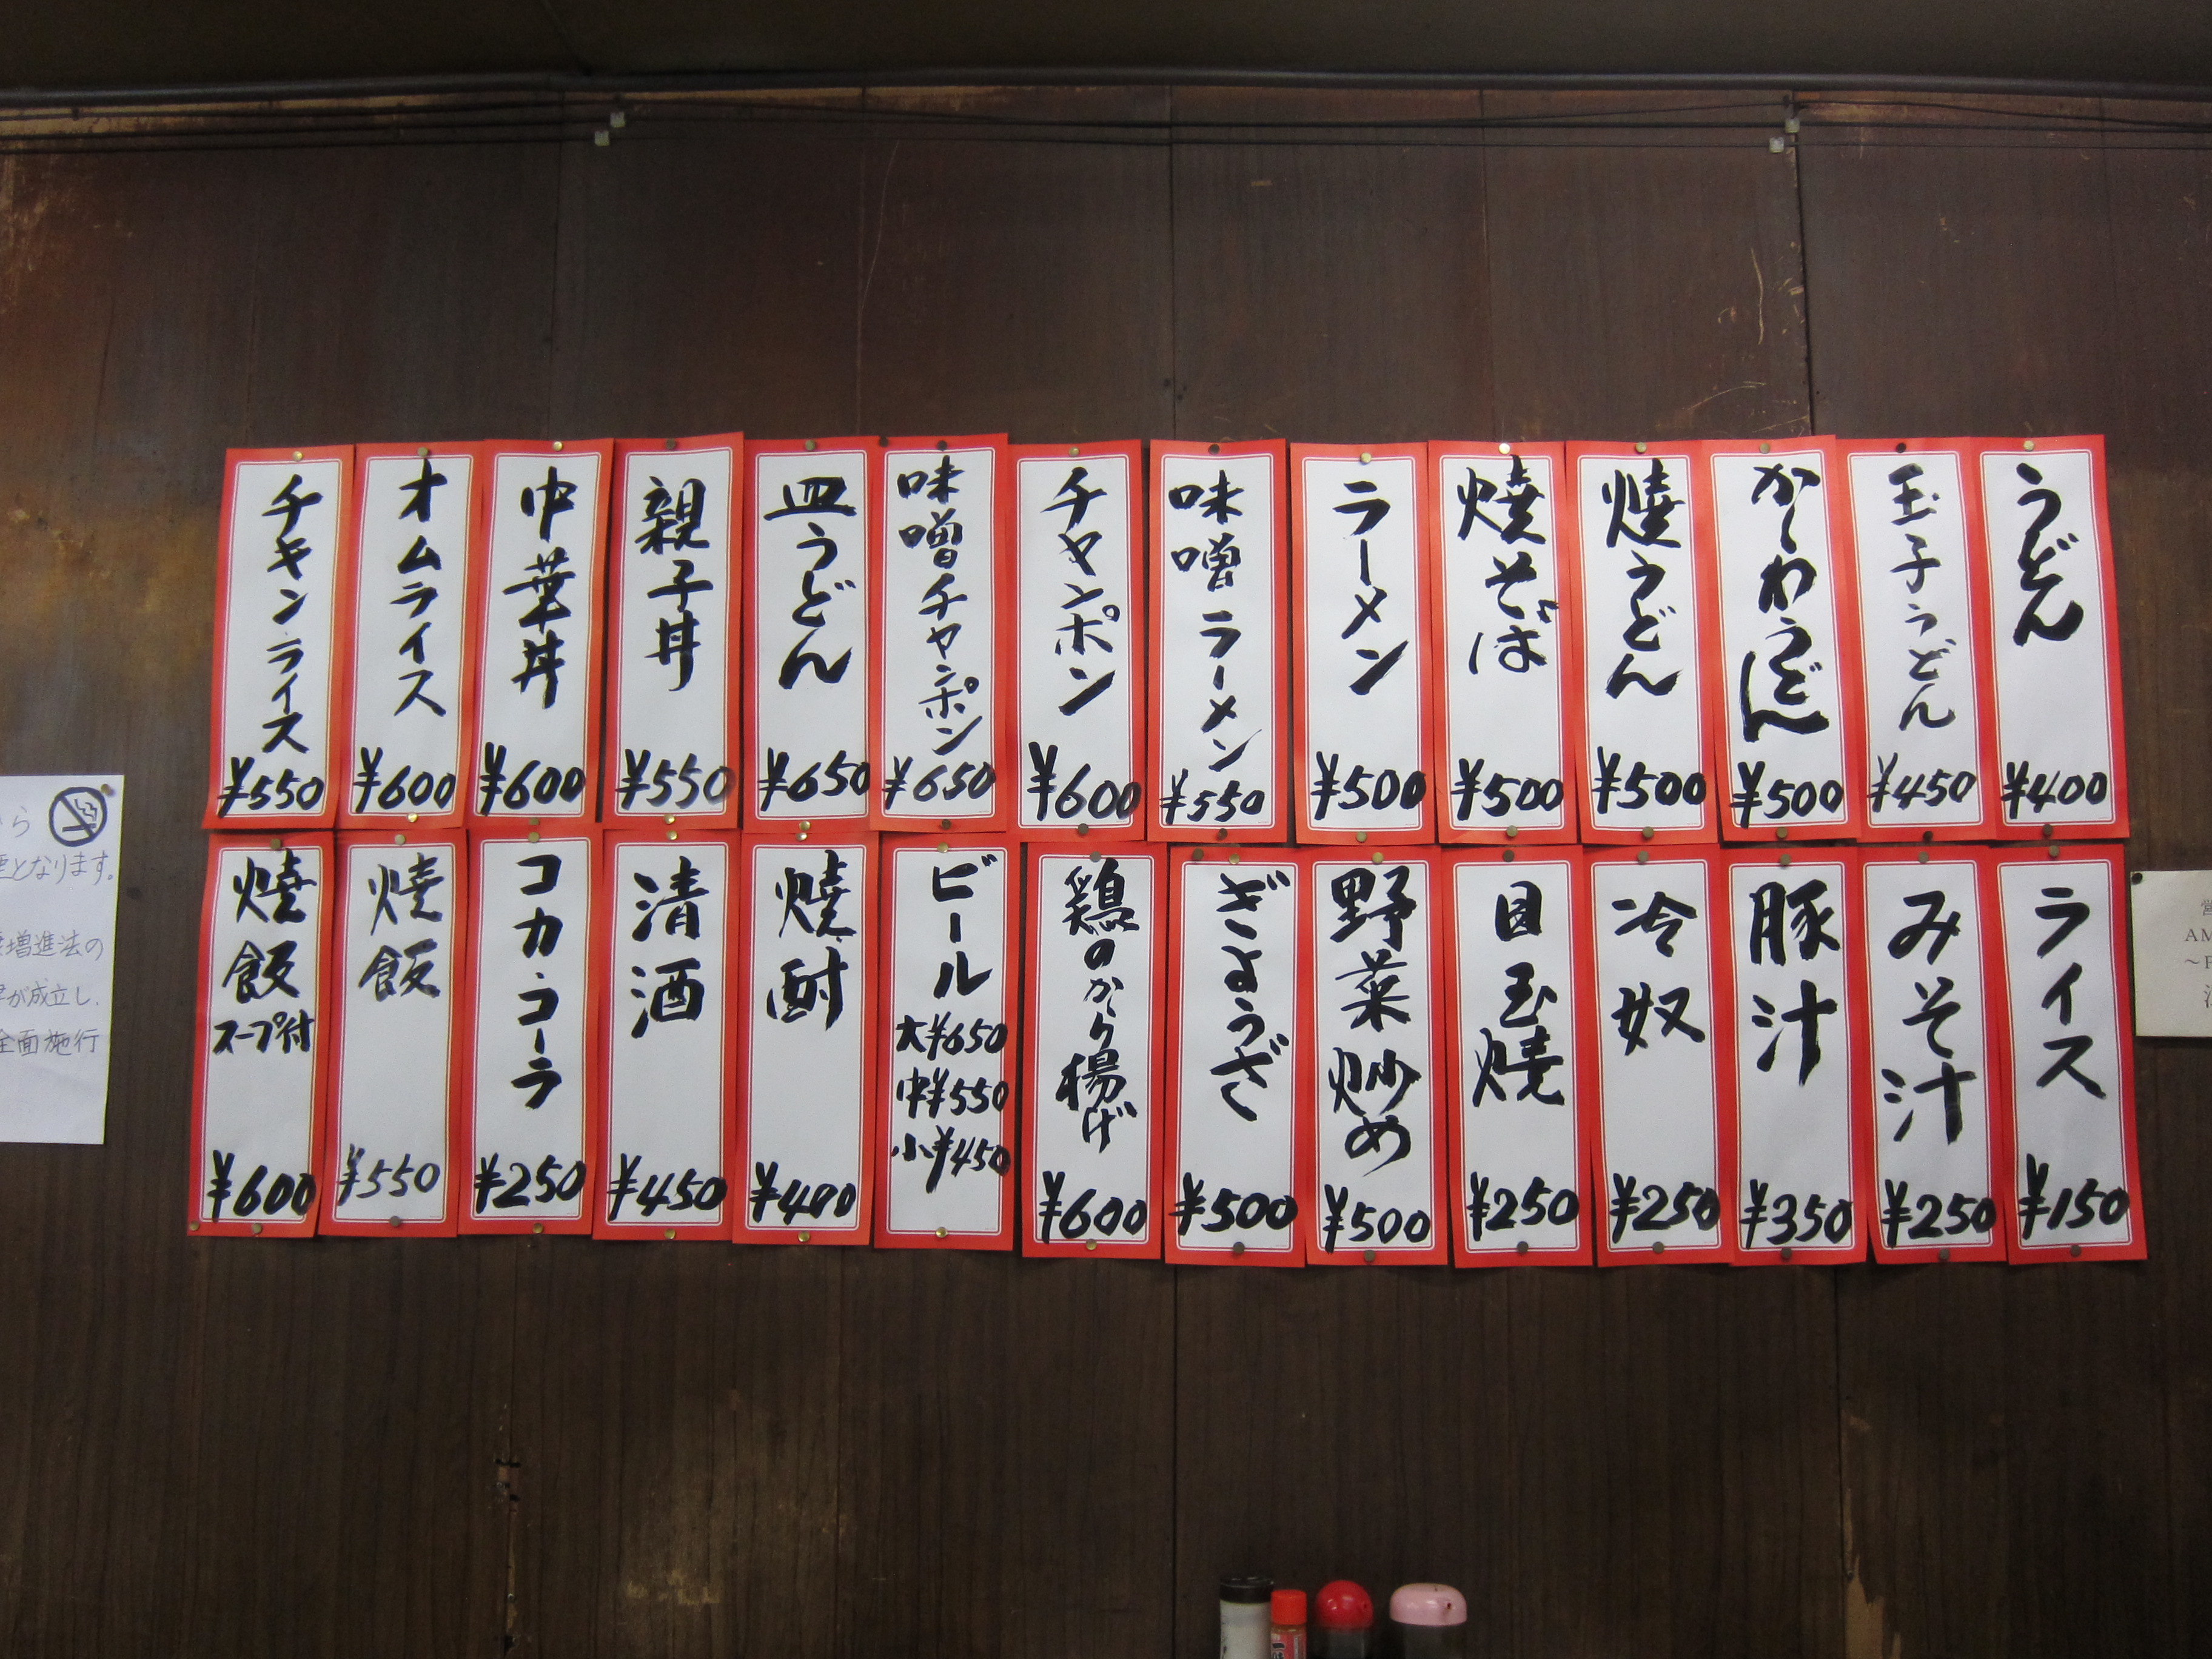 うどん
¥400
玉子うどん
¥450
かしわうどん
¥500
焼うどん
¥500
焼そば
¥500
ラーメン
¥500
味噌ラーメン
¥550
チャンポン
¥600
味噌チャンポン
¥650
皿うどん
¥650
親子丼
¥550
中華丼
¥600
オムライス
¥600
チキンライス
¥550
ライス
¥150
みそ汁
¥250
豚汁
¥350
冷奴
¥250
目玉焼
¥250
野菜炒め
¥500
ぎょうざ
¥500
鶏のから揚げ
¥600
ビール
大¥650
中¥550
小¥450
焼酎
¥400
清酒
¥450
コカ・コーラ
¥250
焼飯
¥550
焼飯
スープ付
¥600
ら
となります。
増進法の
が成立し、
全面施行
AM